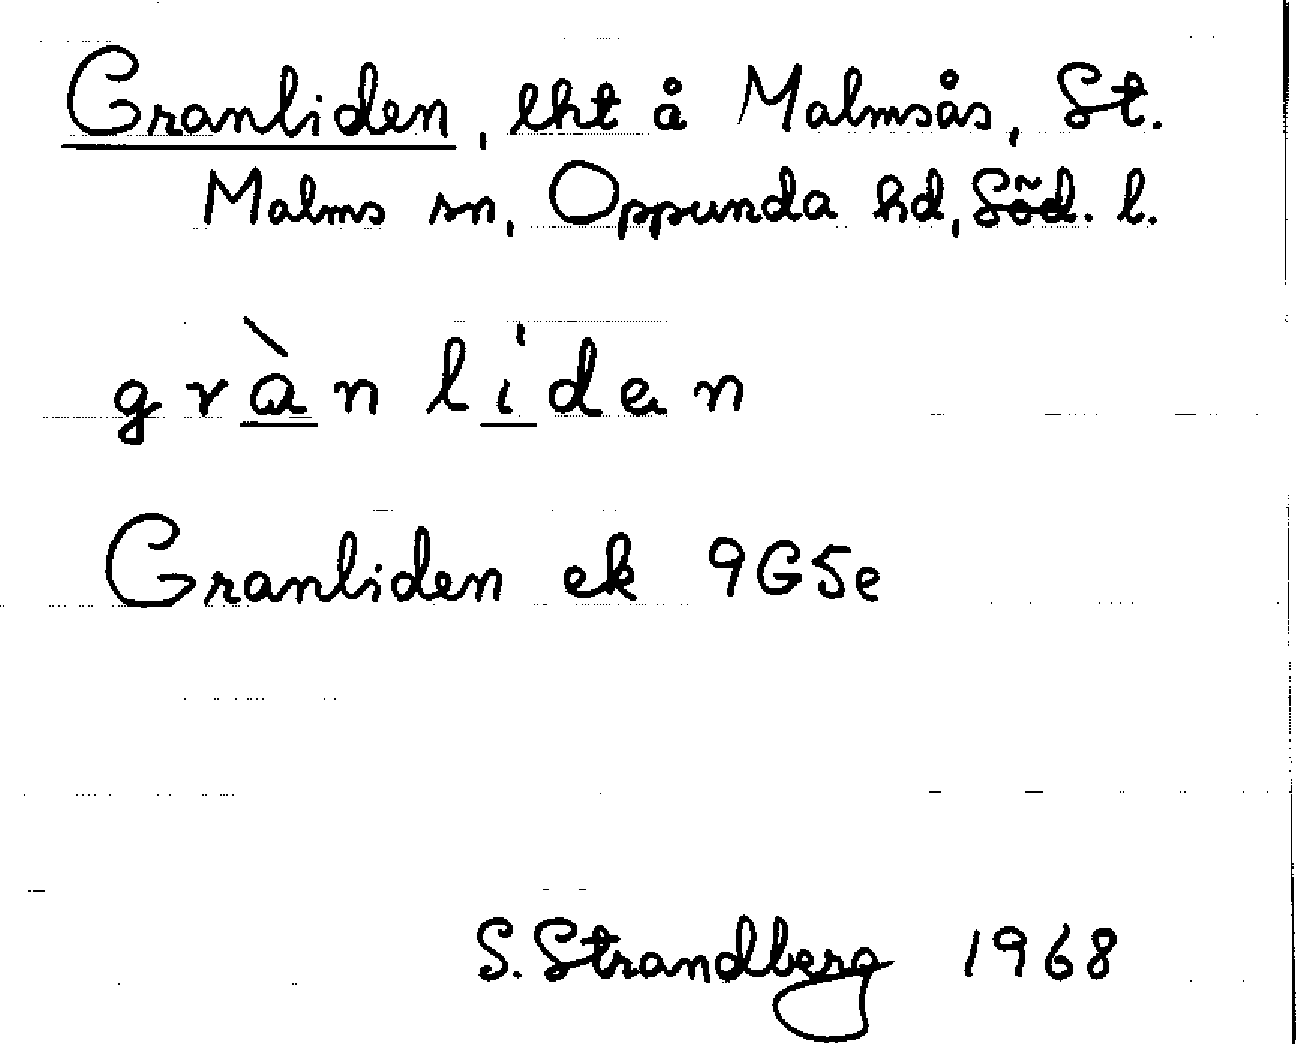 Granliden, lht å Malmsås, St.
Malms sn, Oppunda hd, Söd. l.
gràn líden
Granliden ek 9G5e
S. Strandberg 1968